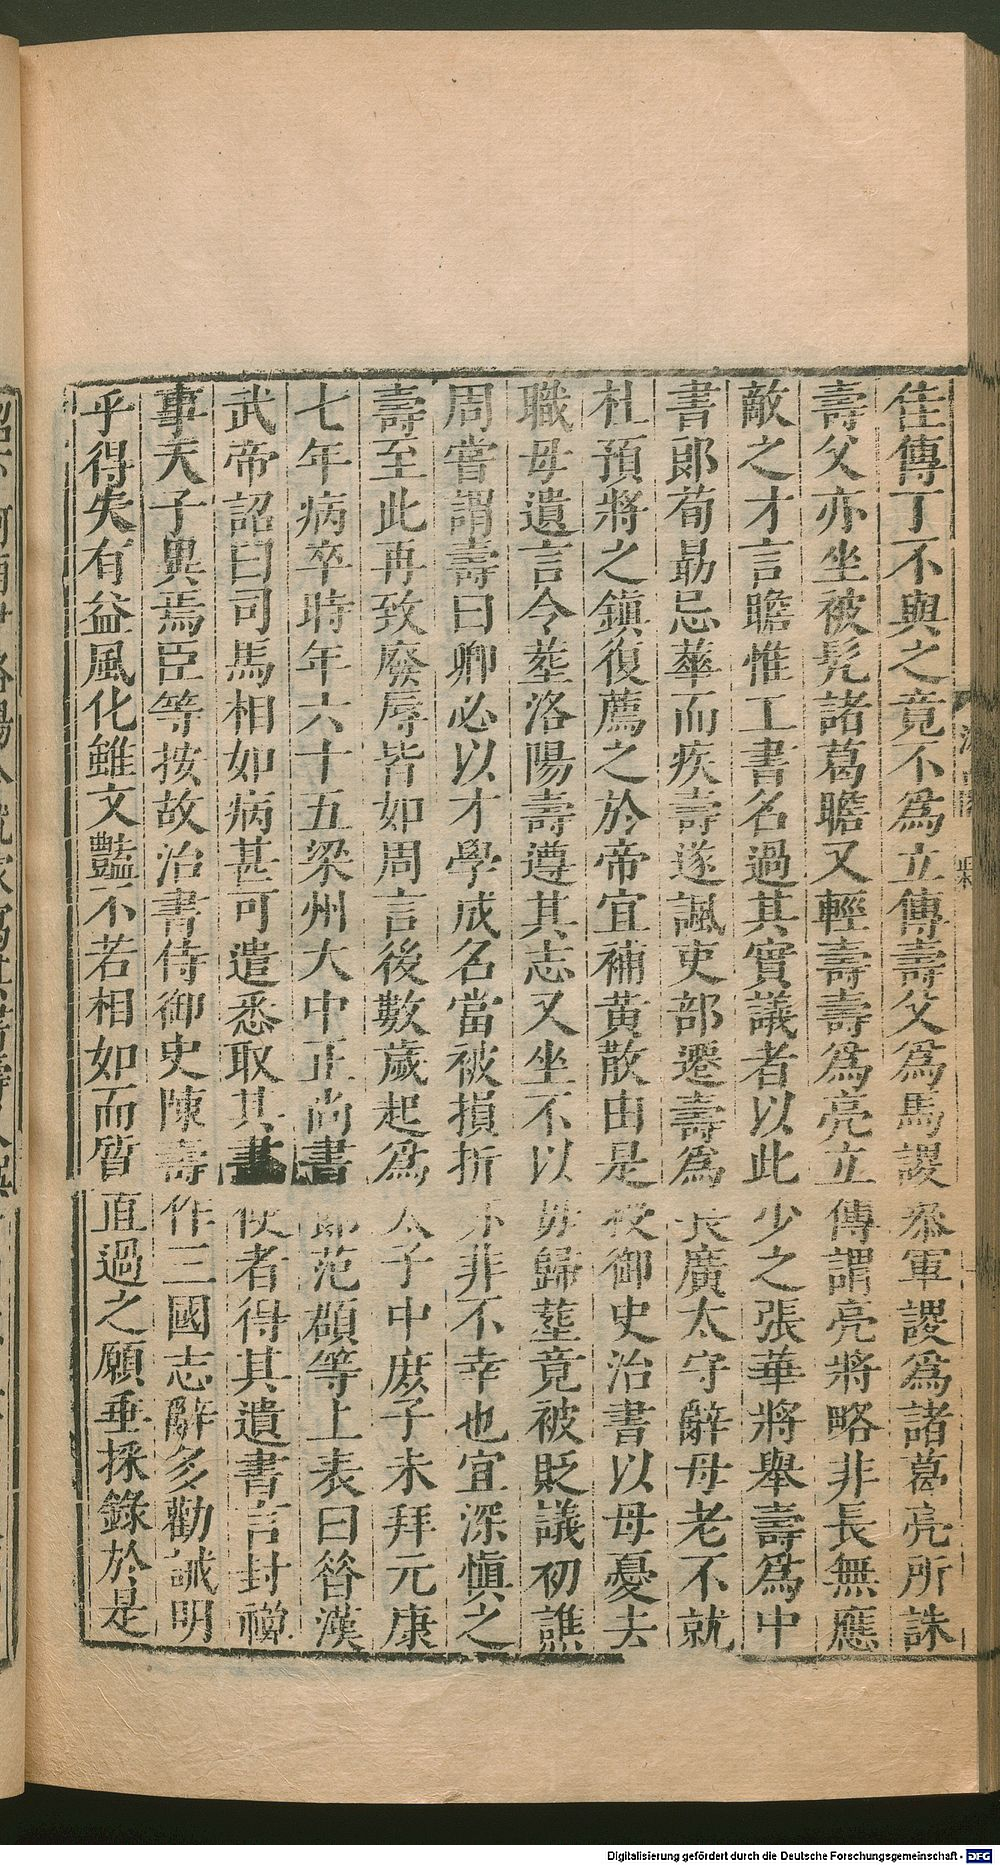 佳傳丁不與之竟不為立傳壽父為馬謖參軍謖為諸葛亮所誅
壽父亦坐被髡諸葛瞻又輕壽壽為亮立傳謂亮將略非長無應
敵之才言瞻惟工書名過其實議者以此少之張華將舉壽為中
書郎荀勗忌華而疾壽遂諷吏部遷壽為長廣太守辭母老不就
杜預將之鎮復薦之於帝宜補黃散由是授御史治書以母憂去
職母遺言令塟洛陽壽遵其志又坐不以母歸塟竟被貶議初譙
周嘗謂壽曰卿必以才學成名當被損折亦非不幸也宜深慎之
壽至此再致廢辱皆如周言後數歲起為太子中庶子未拜元康
七年病卒時年六十五梁州大中正尚書郎范頵等上表曰昝漢
武帝詔曰司馬相如病甚可遣悉取其書使者得其遺書言封禪
事天子異焉臣等按故治書侍御史陳壽作三國志辭多勸誡明
乎得失有益風化雖文豔不若相如而質直過之願垂採錄於是
Digitalisierung gefördert durch die Deutsche Forschungsgemeinschaft - DFG